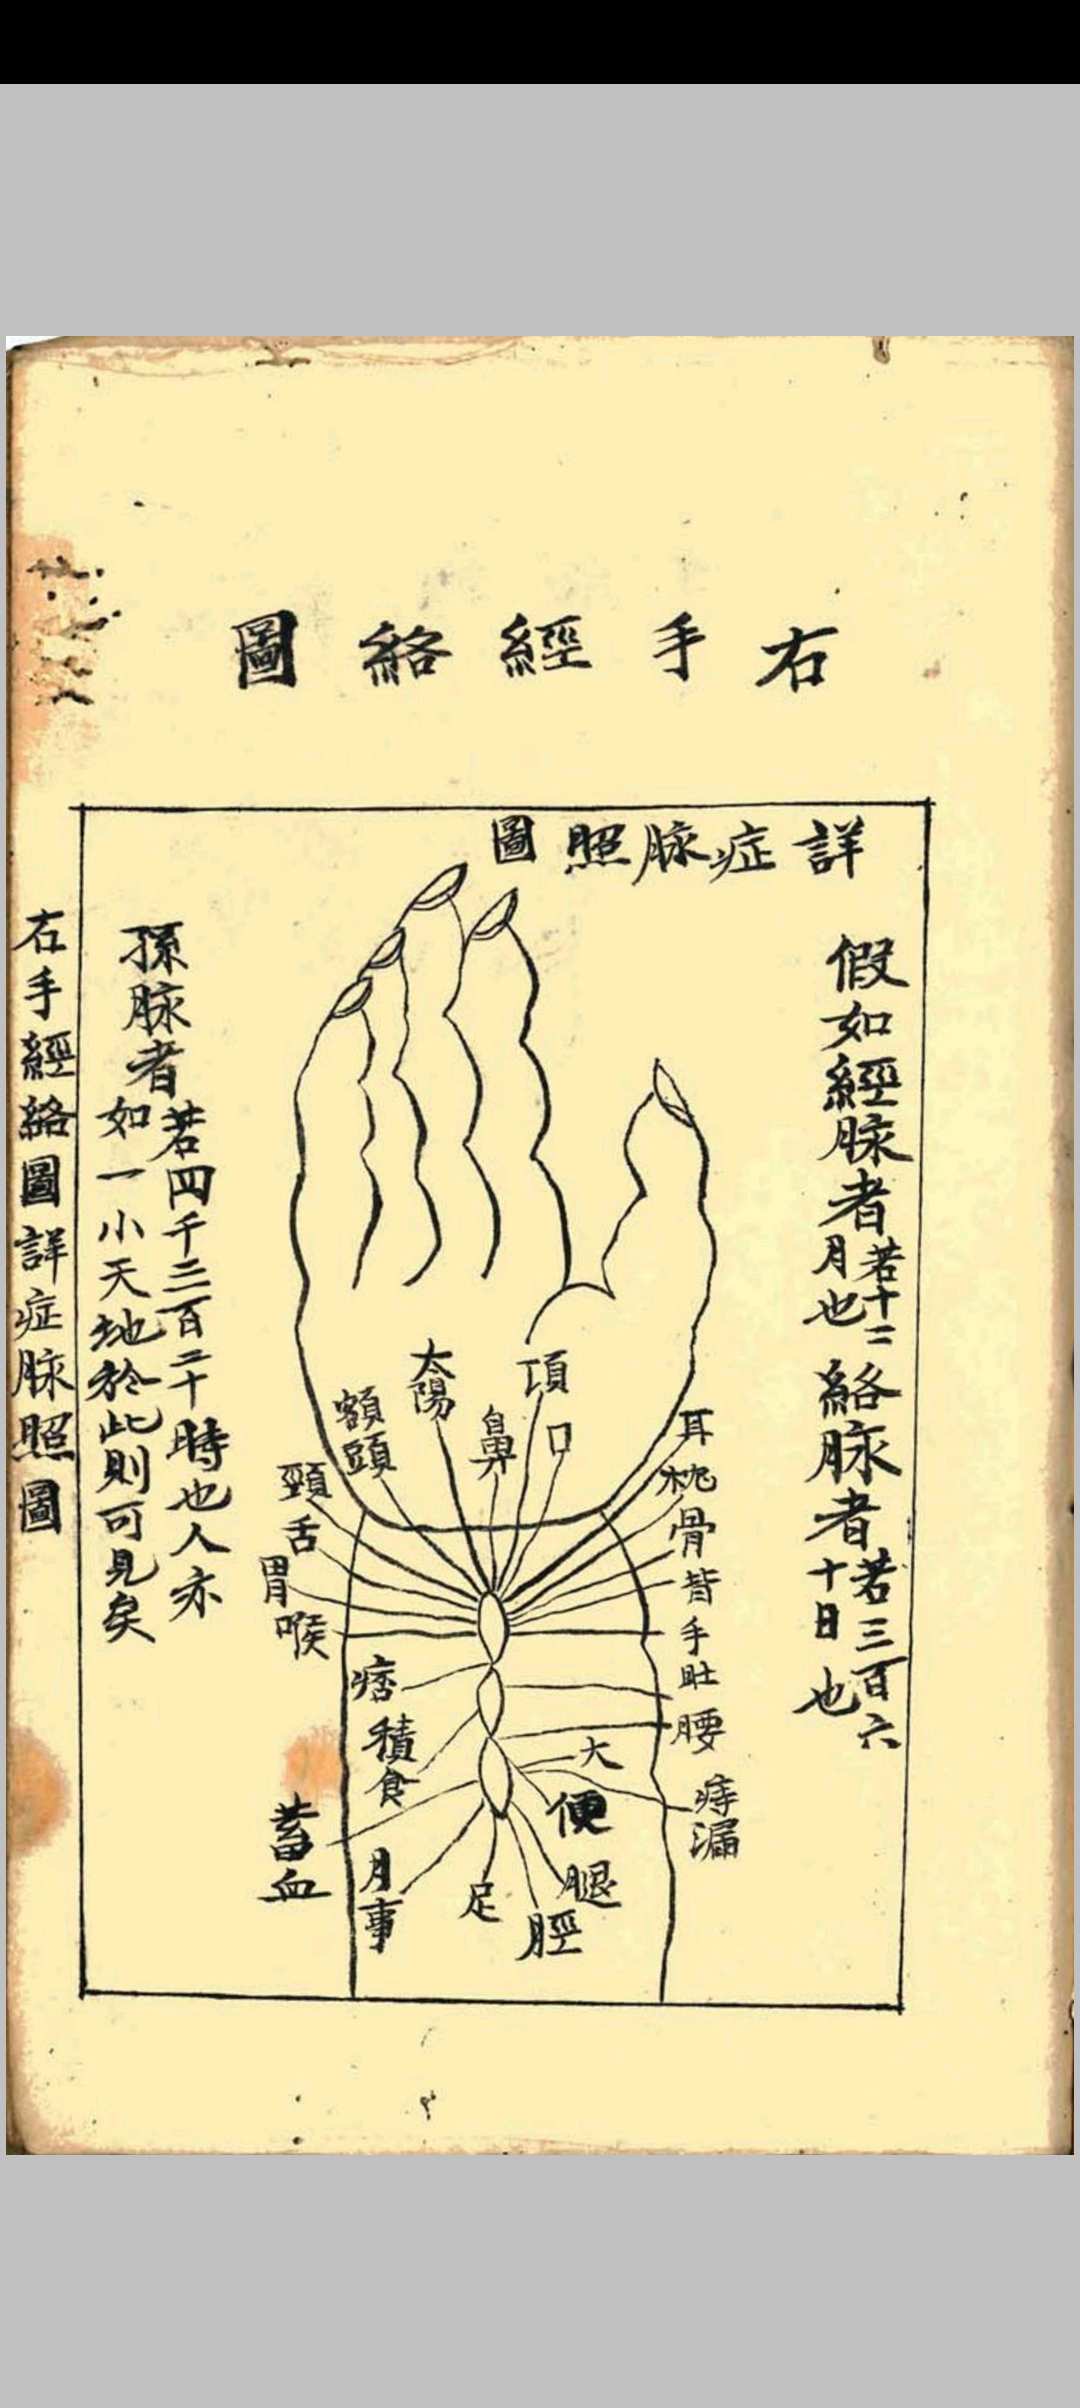 右手經絡圖
詳症脉照圖
假如經脉者若十二月也絡脉者若三百六十日也
孫脉者若四千三百二十時也人亦如一小天地於此則可見矣
右手經絡圖詳症脉照圖
項
太陽
額頭
鼻
口
耳
枕骨
頸
舌
胃
喉
背
手
肚
腰
痞
積食
大便
痔漏
蓄血
月事
足
腿
脛